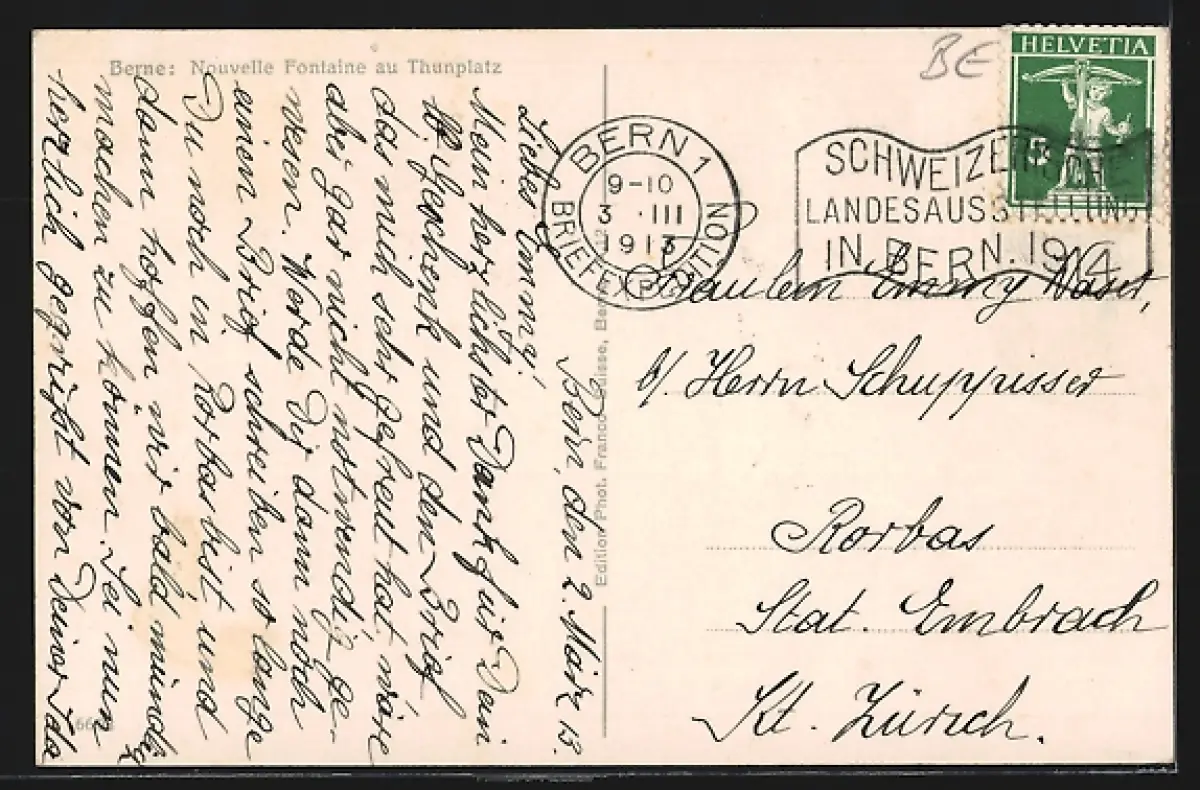 Berne: Nouvelle Fontaine au Thunplatz
BE
HELVETIA
5
BERN 1
9-10
3 . III
1913
BRIEFEXPEDITION
SCHWEIZERISCHE
LANDESAUSSTELLUNG
IN BERN. 1914
Edition Phot. Franco-Suisse, Berne
Bern, den 2. März 13.
Liebe Emmi!
Mein herzlichster Dank für Dein
Geschenk und den Brief
das mich sehr gefreut hat, wäre
aber gar nicht notwendig ge-
wesen. Werde Dir dann noch
einen Brief schreiben so lange
Du noch in Rorbas bist und
dann hoffen wir bald mündlich
machen zu können. Sei nun
herzlich gegrüßt von Deiner Ida
Fräulein Emmy
b/ Herrn Schuppisser
Rorbas
Stat. Embrach
Kt. Zürich.